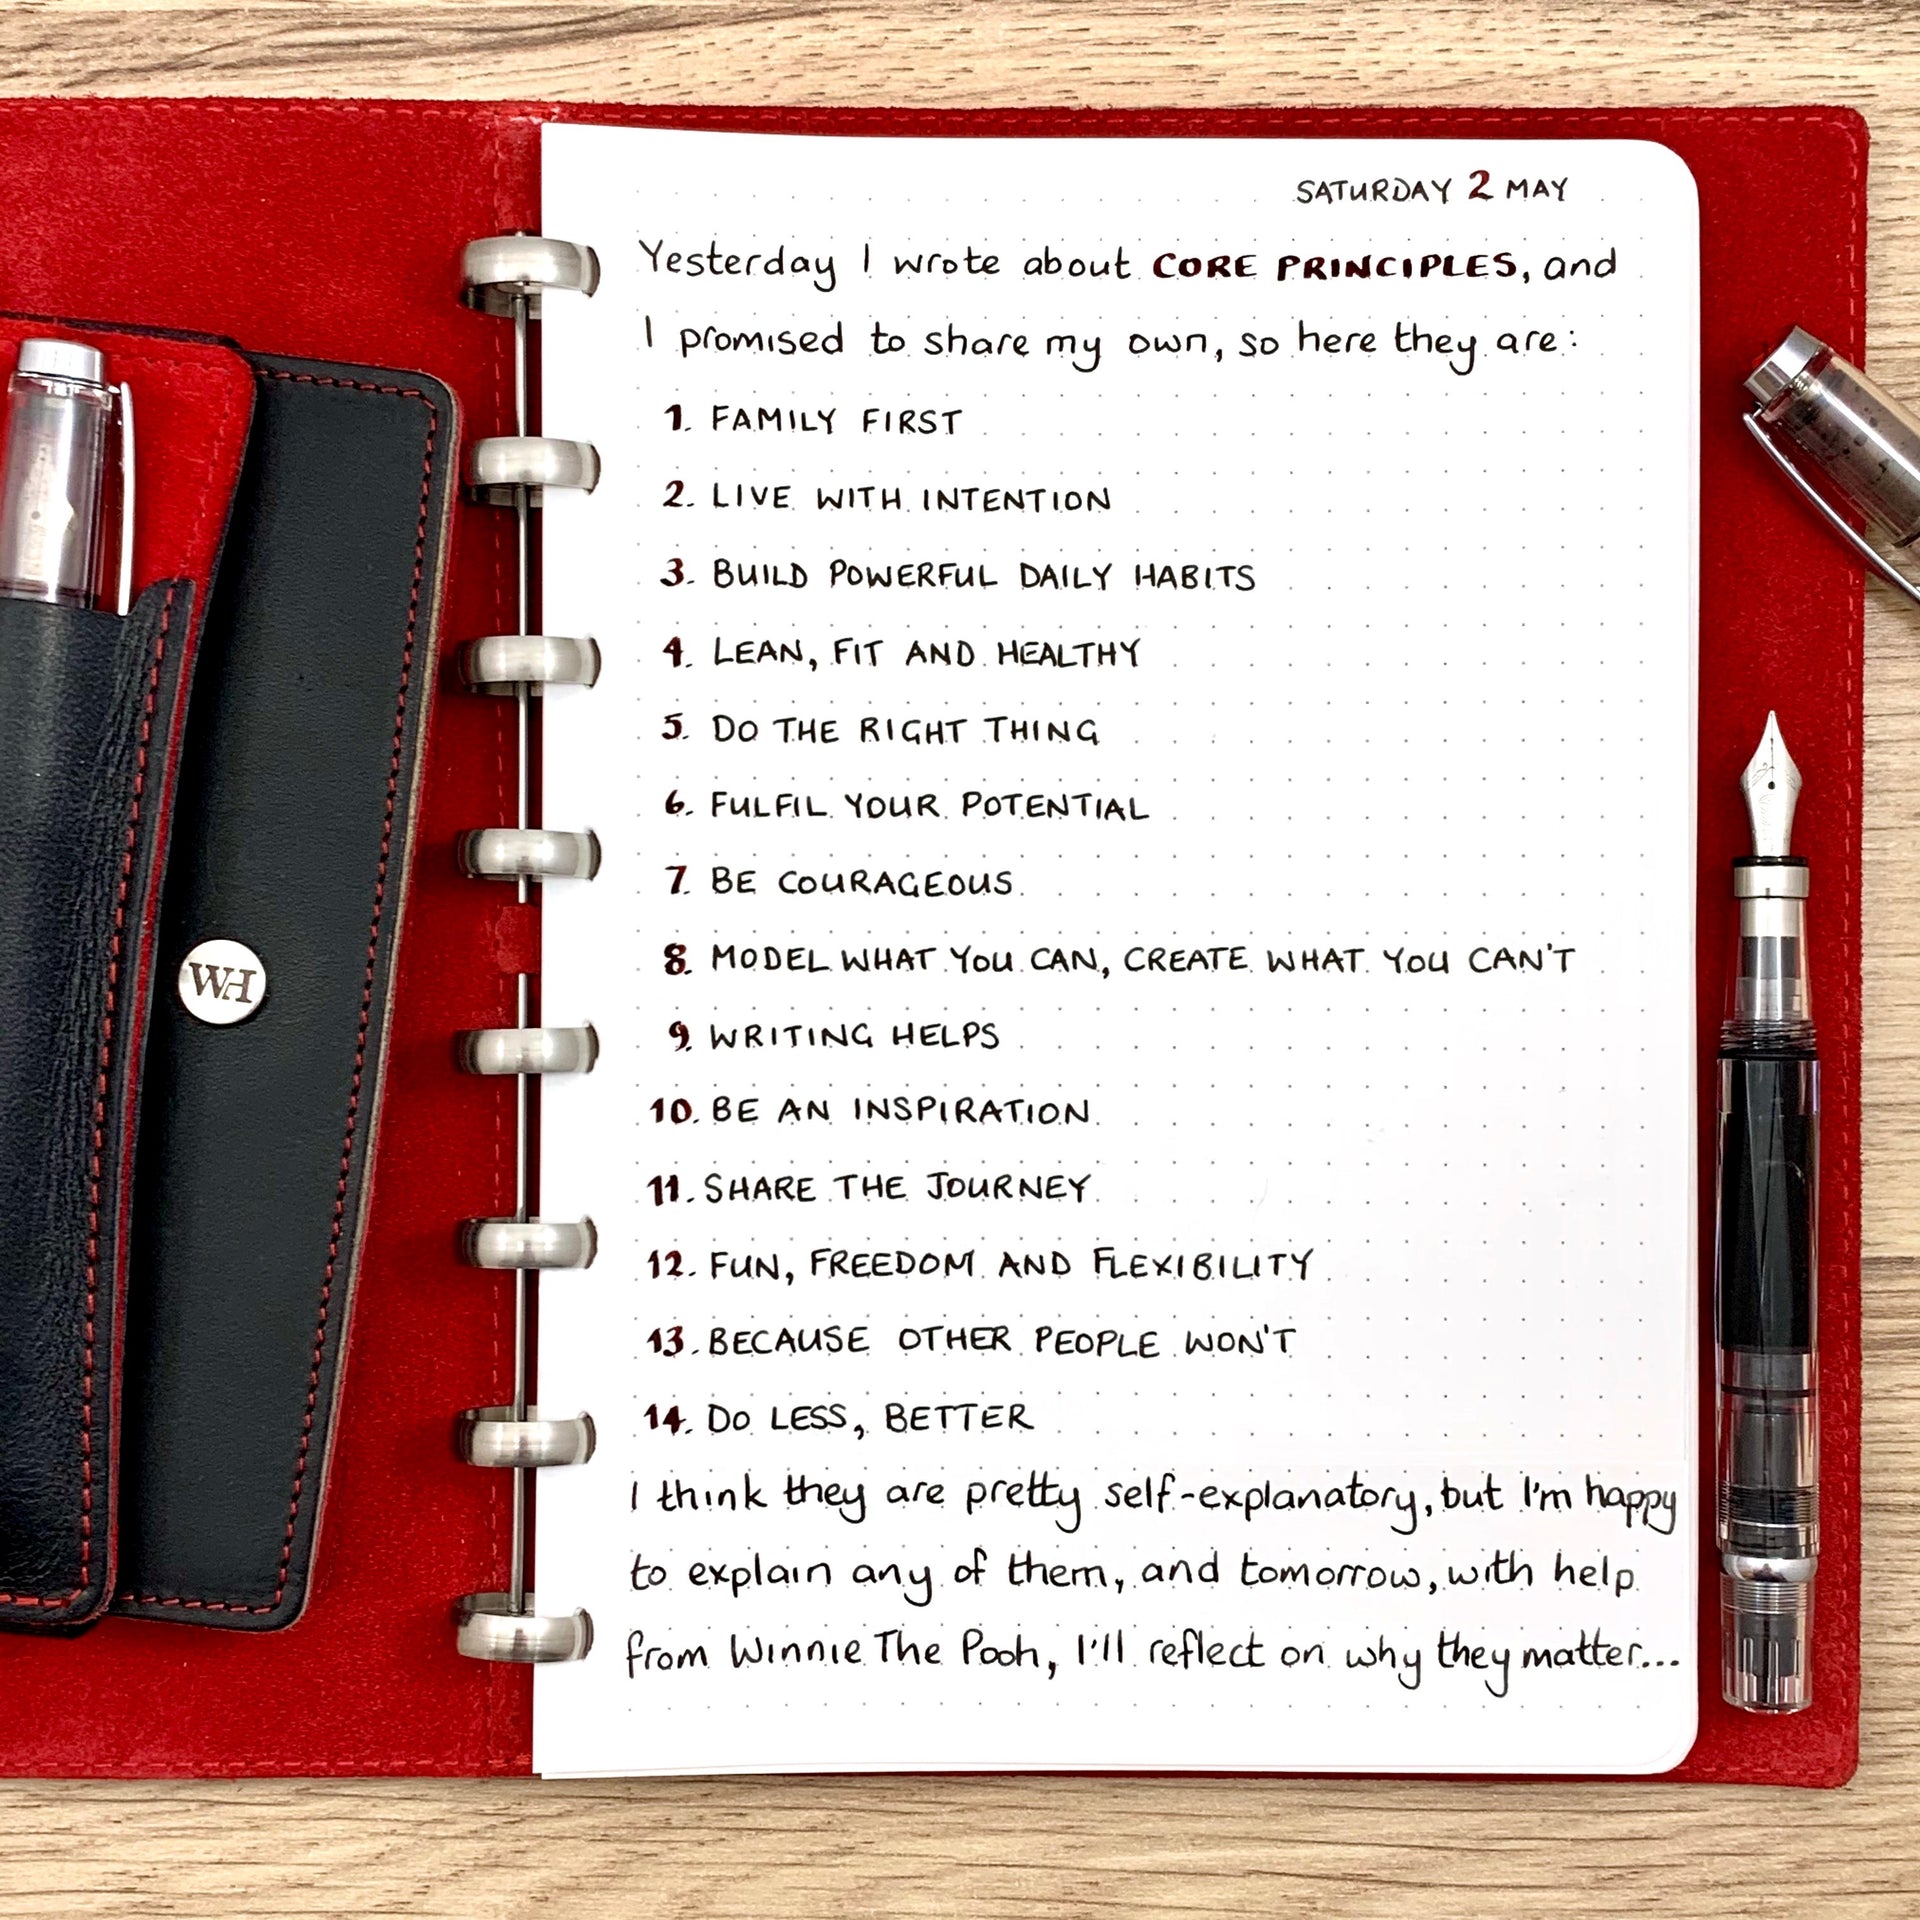 SATURDAY 2 MAY
Yesterday I wrote about CORE PRINCIPLES, and
I promised to share my own, so here they are:
1. FAMILY FIRST
2. LIVE WITH INTENTION
3. BUILD POWERFUL DAILY HABITS
4. LEAN, FIT AND HEALTHY
5. DO THE RIGHT THING
6. FULFIL YOUR POTENTIAL
7. BE COURAGEOUS
8. MODEL WHAT YOU CAN, CREATE WHAT YOU CAN'T
9. WRITING HELPS
10. BE AN INSPIRATION
11. SHARE THE JOURNEY
12. FUN, FREEDOM AND FLEXIBILITY
13. BECAUSE OTHER PEOPLE WON'T
14. DO LESS, BETTER
I think they are pretty self-explanatory, but I'm happy
to explain any of them, and tomorrow, with help
from Winnie The Pooh, I'll reflect on why they matter...
WH